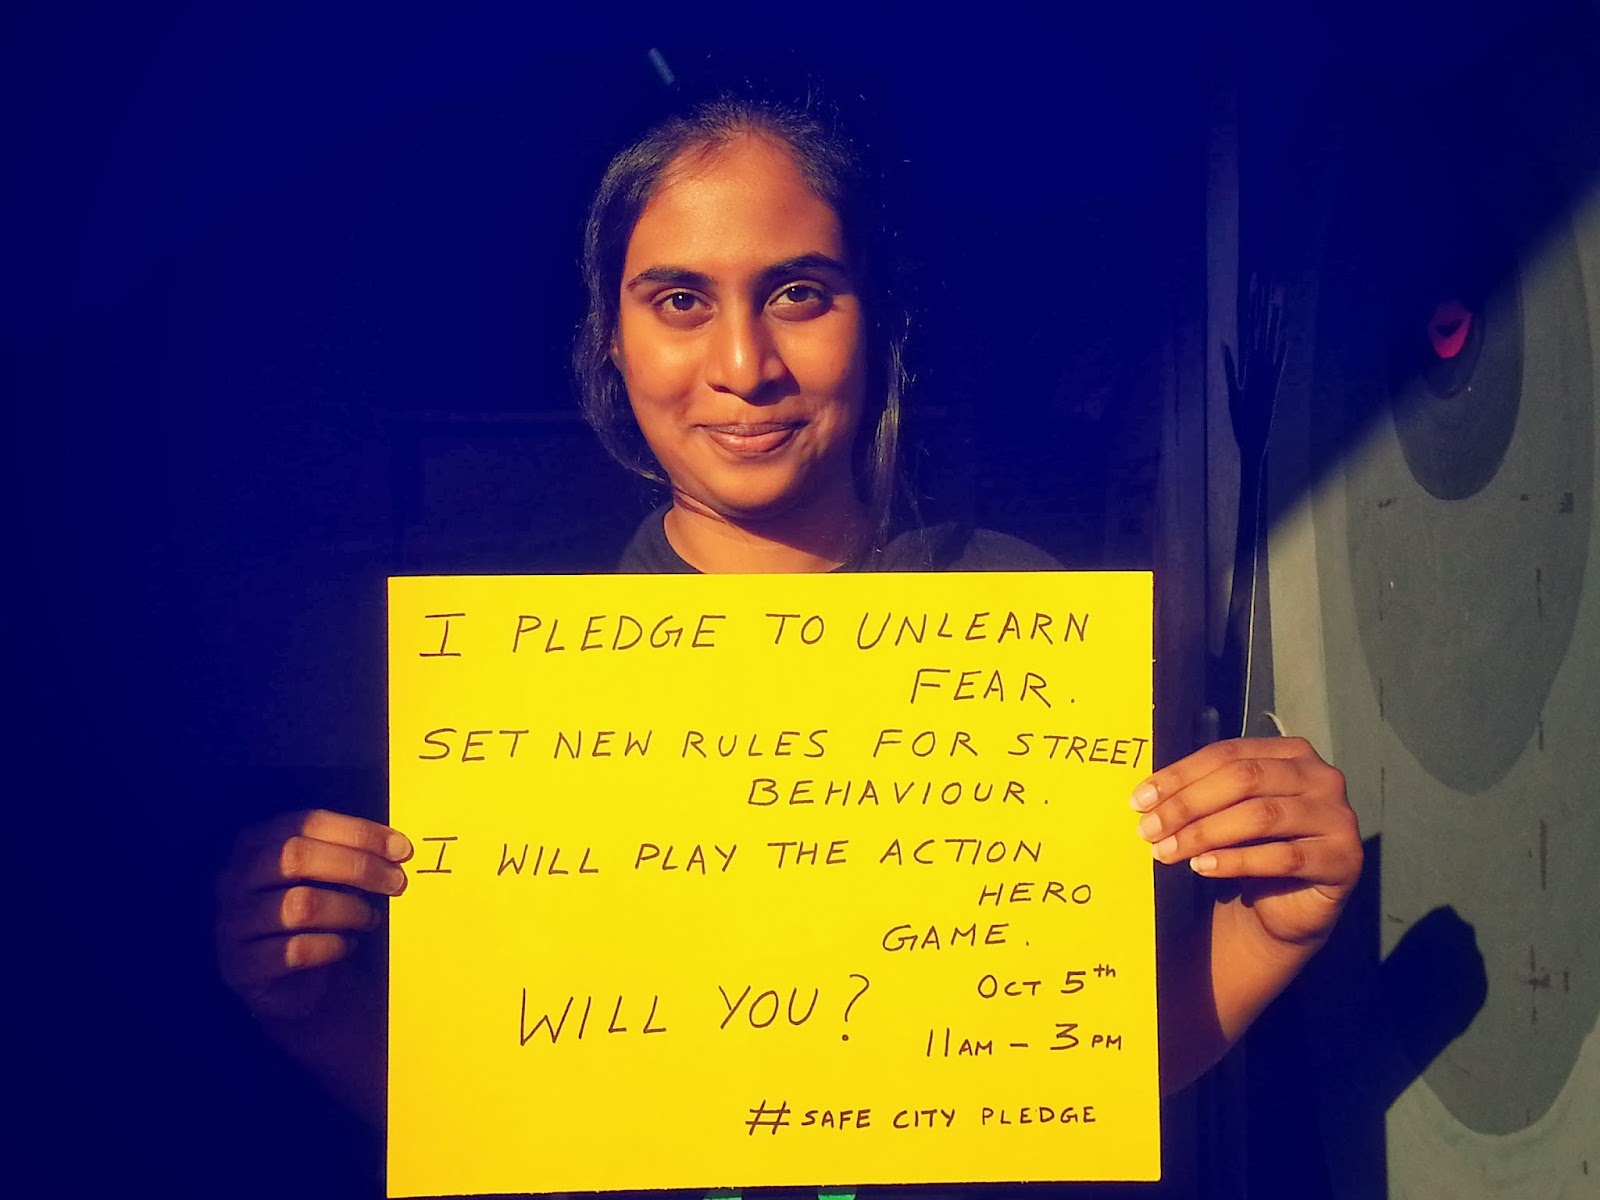 I PLEDGE TO UNLEARN
FEAR.
SET NEW RULES FOR STREET
BEHAVIOUR.
I WILL PLAY THE ACTION
HERO
GAME.
WILL YOU?
OCT 5th
11AM - 3PM
# SAFE CITY PLEDGE